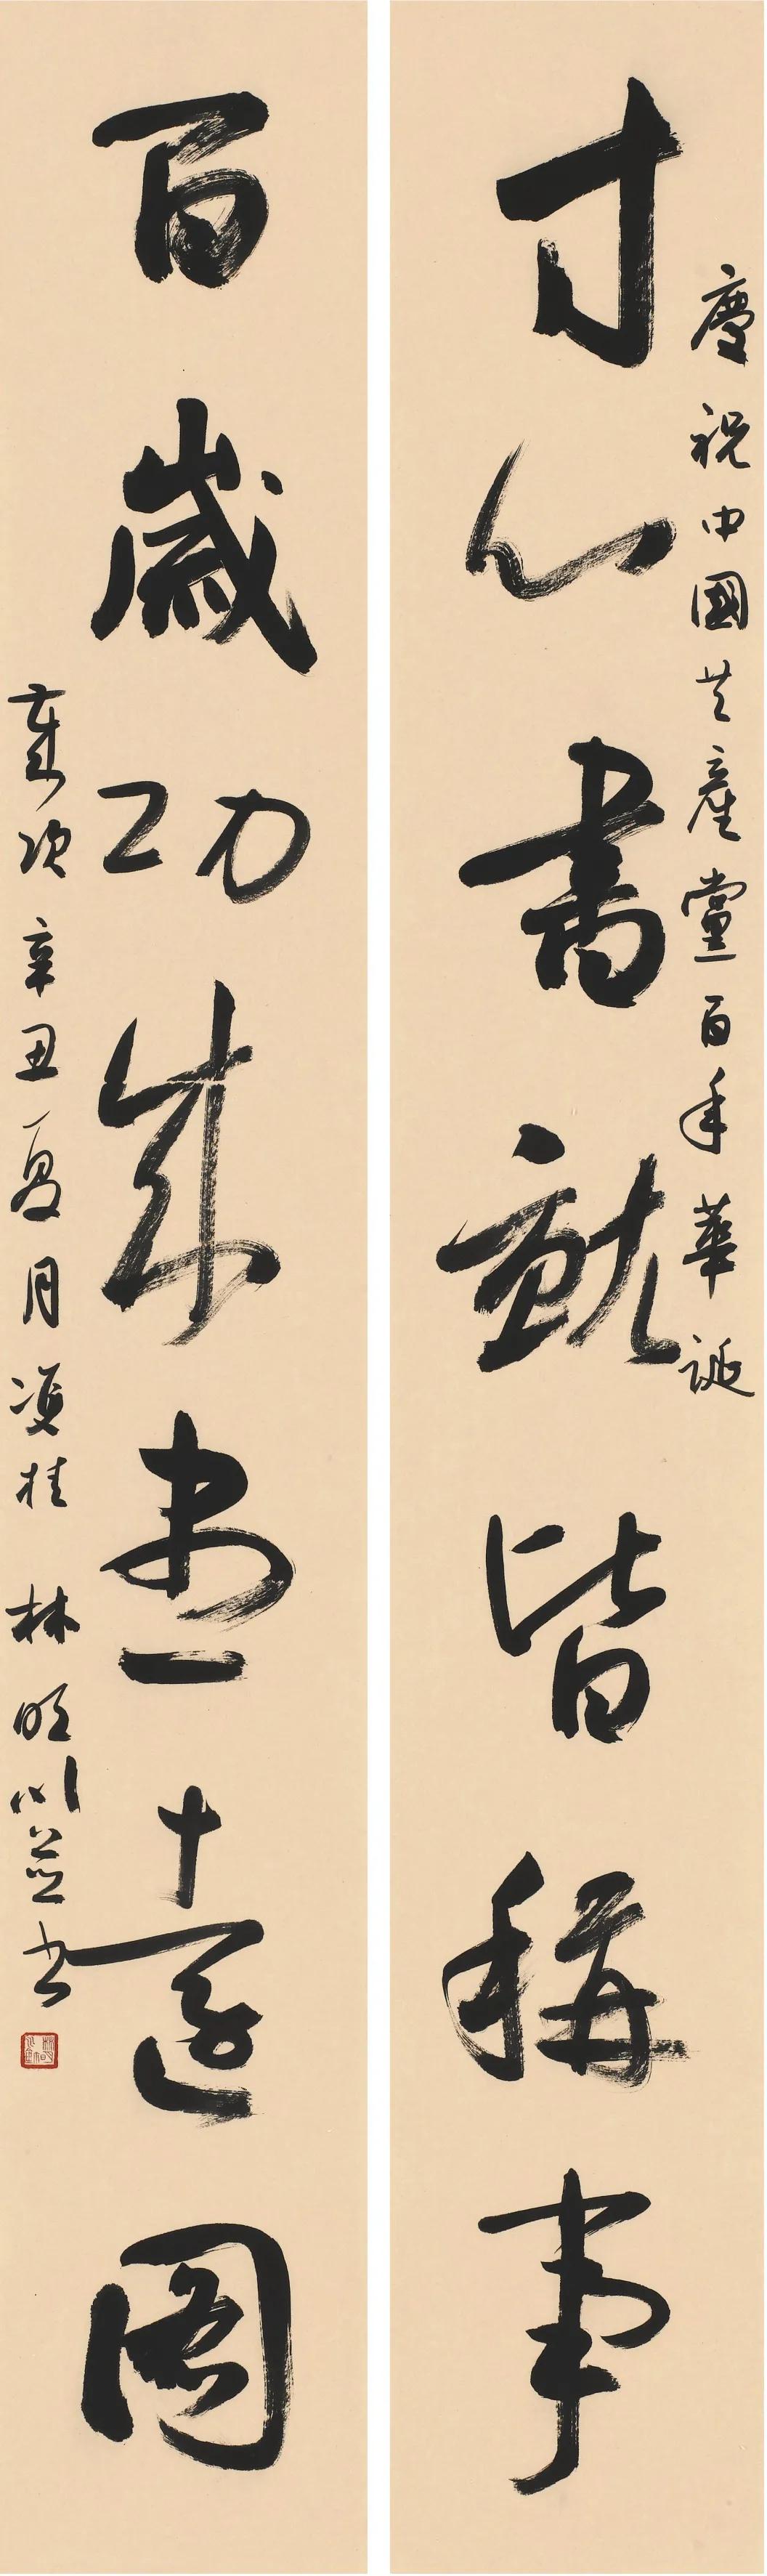 慶祝中國共產黨百年華誕
寸心書就皆稱事
百歲功成盡遠圖
歲次辛丑夏月桂林明川並書